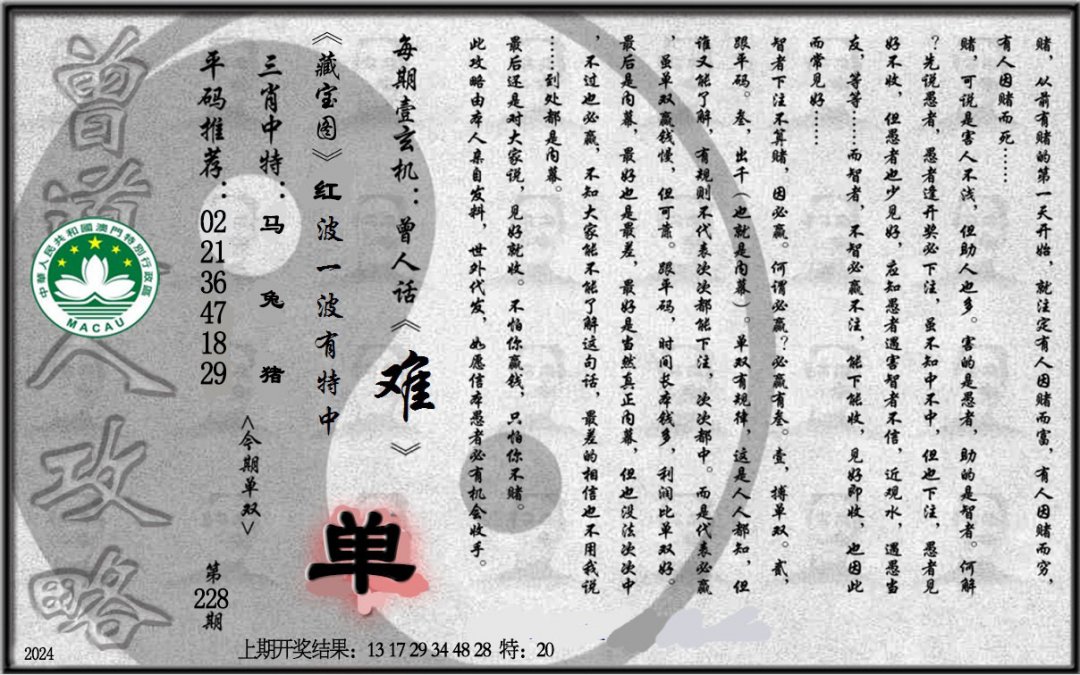 赌，从前有赌的第一天开始，就注定有人因赌而富，有人因赌而穷，
有人因赌而死……
赌，可说是害人不浅，但助人也多。害的是愚者，助的是智者。何解
？先说愚者，愚者逢开奖必下注，虽不知中不中，但也下注，愚者见
好不收，但愚者也少见好，应知愚者遇害智者不信，近观水，遇愚当
友，等等……而智者，不智必赢不注，能下能收，见好即收，也因此
而常见好……
智者下注不算赌，因必赢。何谓必赢？必赢有叁。壹，搏单双。贰，
跟平码。叁，出千（也就是内幕）。单双有规律，这是人人都知，但
谁又能了解，有规则不代表次次都能下注，次次都中。而是代表必赢
，虽单双赢钱慢，但可靠。跟平码，时间长本钱多，利润比单双好。
最后是内幕，最好也是最差，最好是当然真正内幕，但也没法次次中
，不过也必赢，不知大家能不能了解这句话，最差的相信也不用我说
……到处都是内幕。
最后还是对大家说，见好就收。不怕你赢钱，只怕你不赌。
此攻略由本人亲自发料，世外代发，如愿信本愚者必有机会收手。
每期壹玄机：曾人话《难》
《藏宝图》红波一波有特中
单
三肖中特：马 兔 猪
<今期单双>
平码推荐：02 21 36 47 18 29
第228期
曾道人攻略
中華人民共和國澳門特別行政區
MACAU
上期开奖结果：13 17 29 34 48 28 特：20
2024